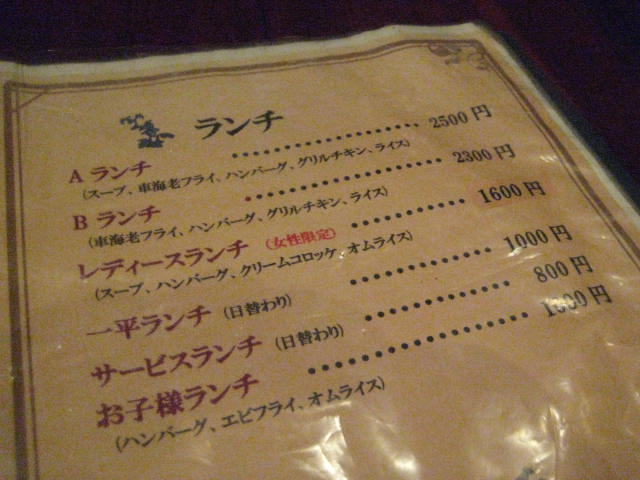 ランチ
A ランチ ・・・・・・・・・・・・・・・・・・ 2500 円
(スープ、車海老フライ、ハンバーグ、グリルチキン、ライス)
B ランチ ・・・・・・・・・・・・・・・・・・ 2300 円
(車海老フライ、ハンバーグ、グリルチキン、ライス)
レディースランチ (女性限定) ・・・・・・・・・・ 1600 円
(スープ、ハンバーグ、クリームコロッケ、オムライス)
一平ランチ (日替わり) ・・・・・・・・・・・・ 1000 円
サービスランチ (日替わり) ・・・・・・・・・・・ 800 円
お子様ランチ ・・・・・・・・・・・・・・・・・ 円
(ハンバーグ、エビフライ、オムライス)